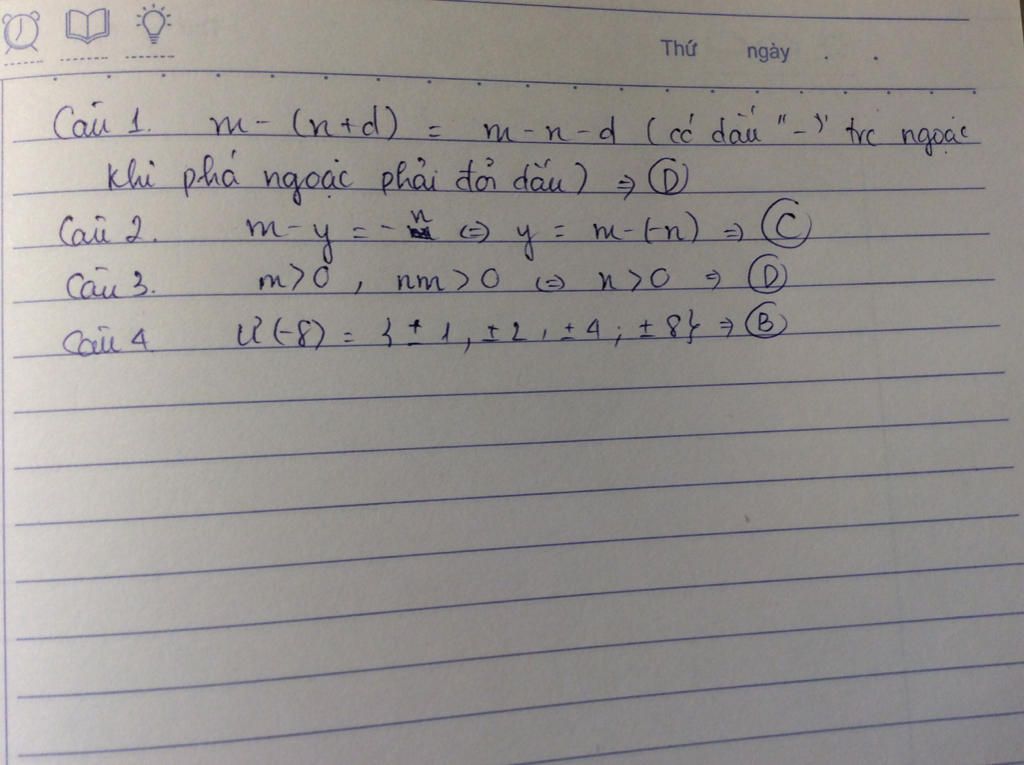 Thứ ngày . .
Câu 1. m - (n+d) = m - n - d (có dấu "-" trc ngoặc
khi phá ngoặc phải đổi dấu) => D
Câu 2. m - y = - n <=> y = m - (-n) => C
Câu 3. m > 0 , nm > 0 <=> n > 0 => D
Câu 4 Ư(-8) = {± 1, ± 2, ± 4; ± 8} => B